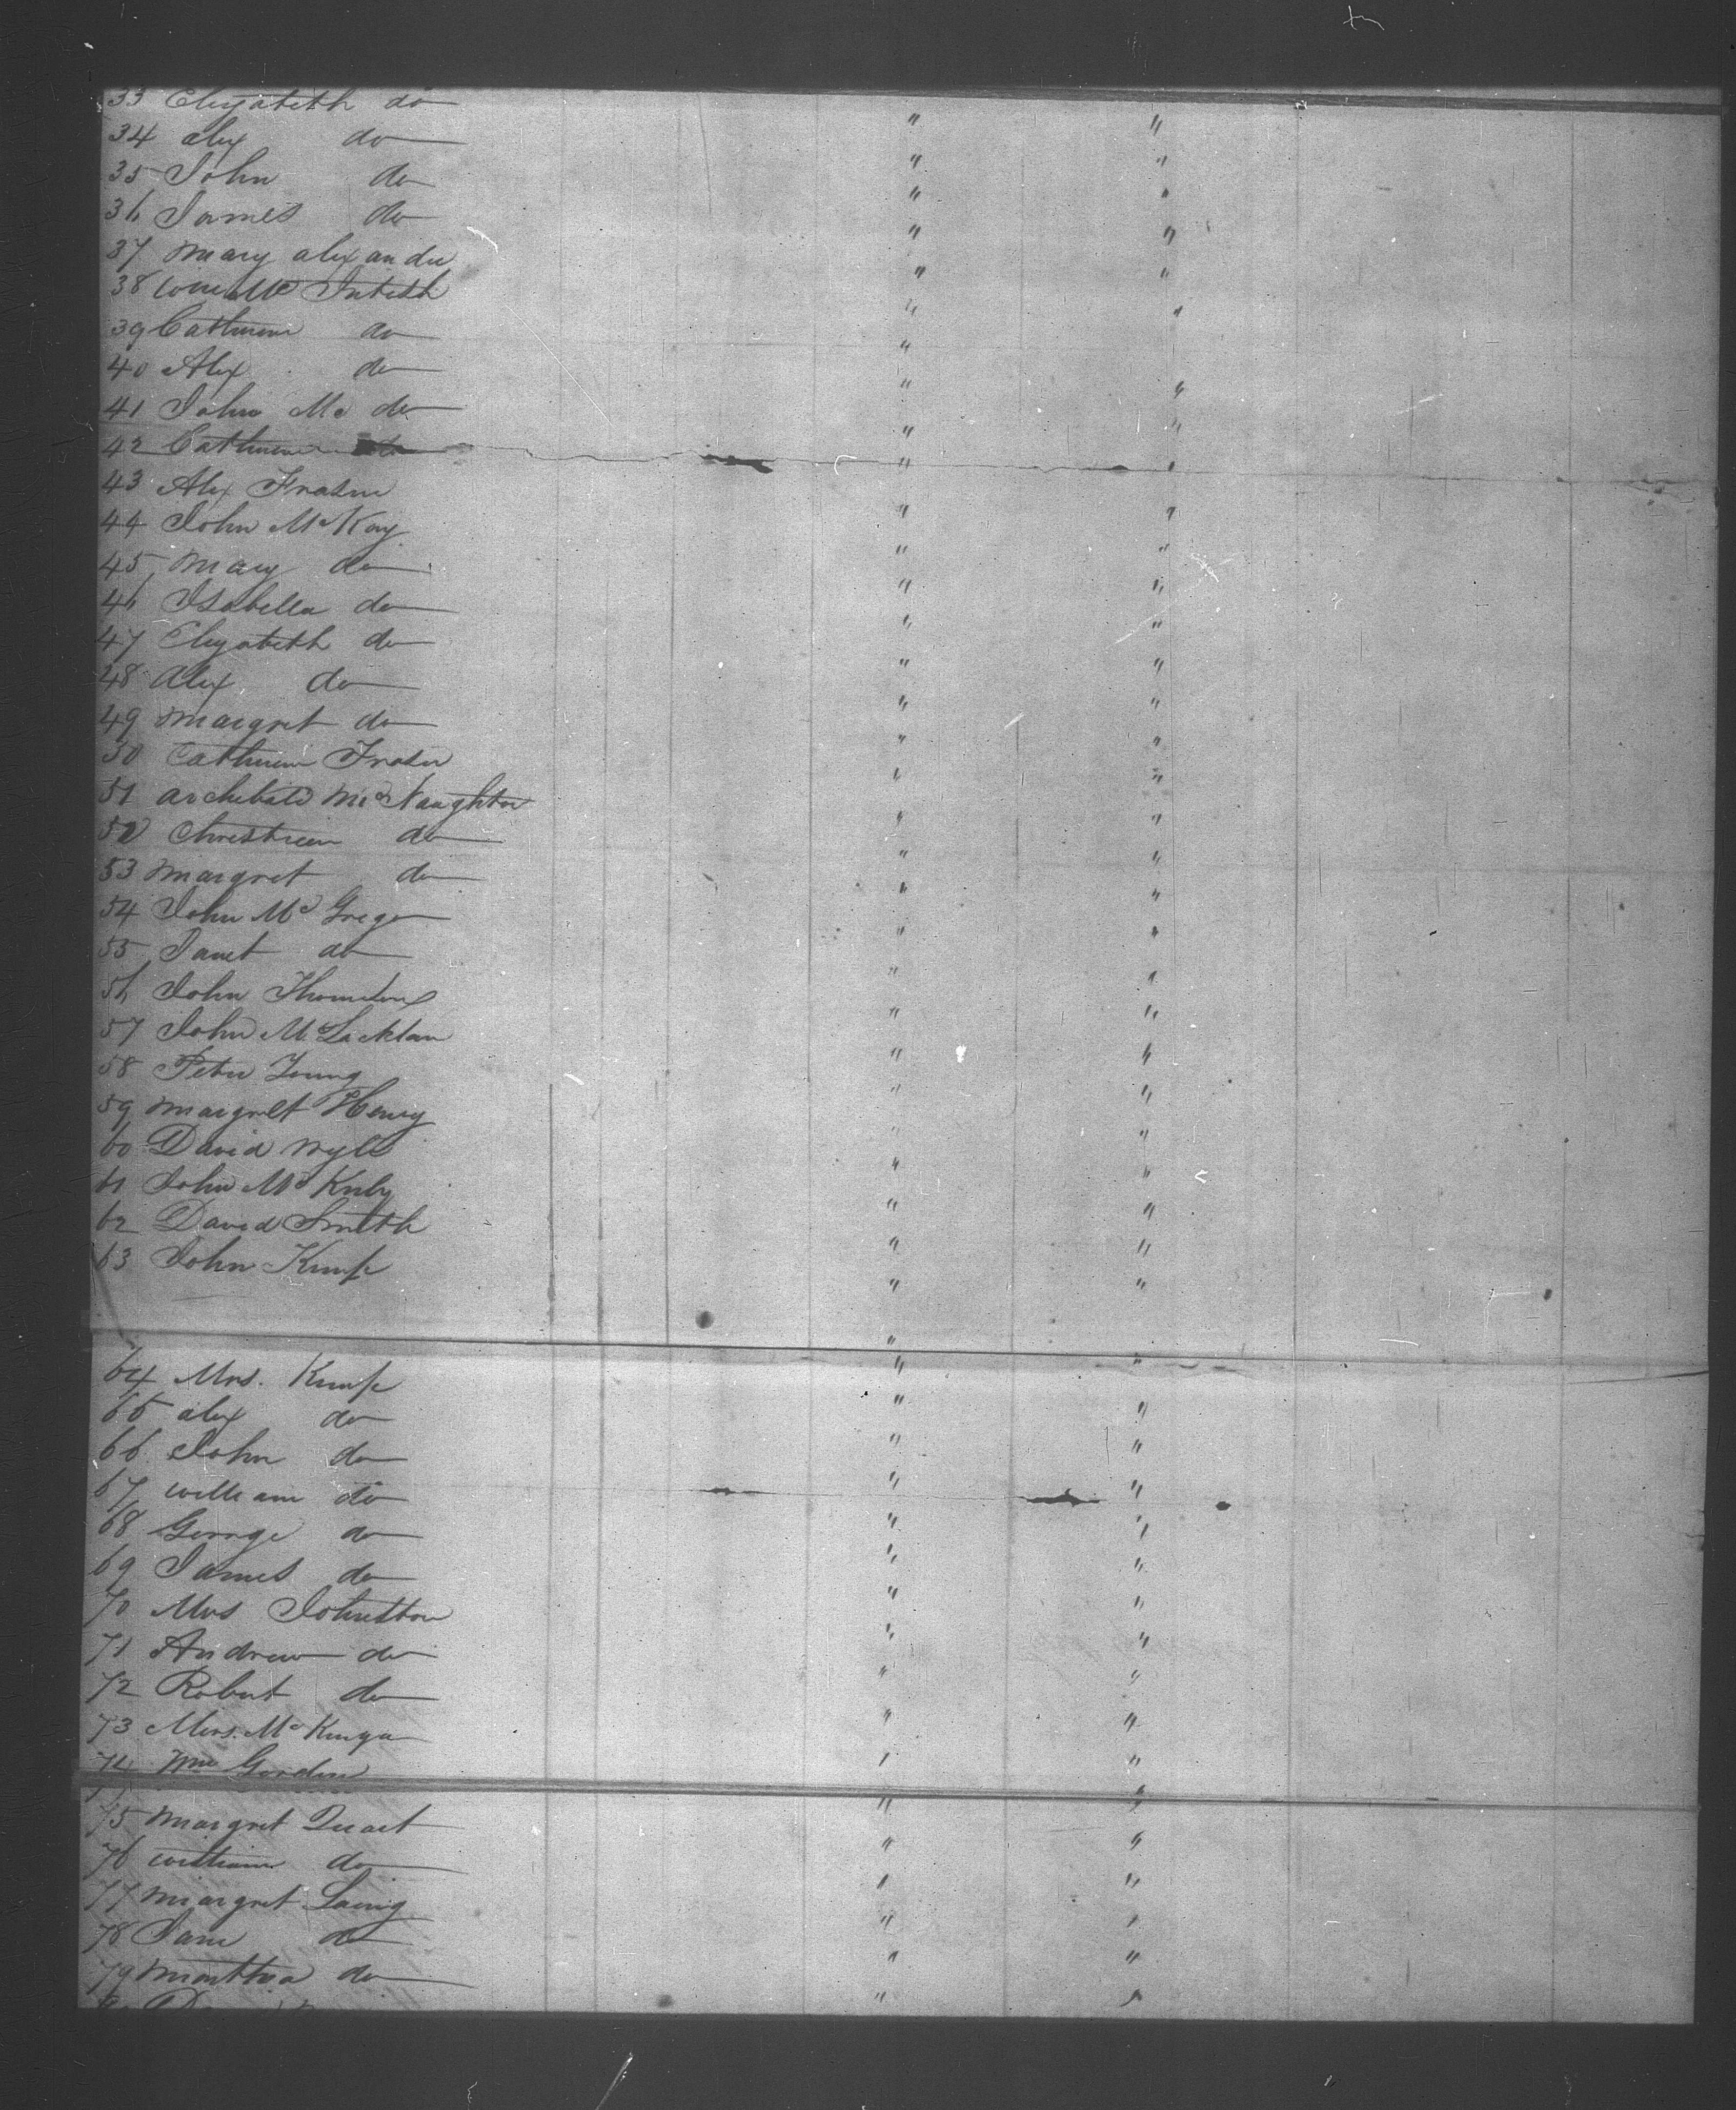 33 Elizabeth do
34 alex do " "
35 John do " "
36 James do " "
37 Mary alexander " "
38 McIntosh " "
39 Catherine do " "
40 Alex do "
41 John Mc do " "
42 Catherine do " "
43 Alex Fraser " "
44 John McKay " "
45 Mary do " "
46 Isabella do " "
47 Elizabeth do " "
48 Alex do " "
49 Margret do " "
50 Catherine Fraser " "
51 archibald McNaughton " "
52 do " "
53 Margret do " "
54 John McGregor " "
55 Janet do " "
56 John " "
57 John McLacklan " "
58 Peter Young " "
59 Margret Henry " "
60 David Wyle " "
61 John Mc " "
62 David Smith " "
63 John Kemp " "
64 Mrs. Kemp " "
65 alex do " "
66 John do " "
67 william do " "
68 George do " "
69 James do " "
70 Mrs Johnston " "
71 Andrew do " "
72 Robert do " "
73 Mrs. Mc " "
74 Wm Gordon " "
75 Margret " "
76 william do " "
77 Margret Laing " "
78 Jane do " "
79 Marttha do " "